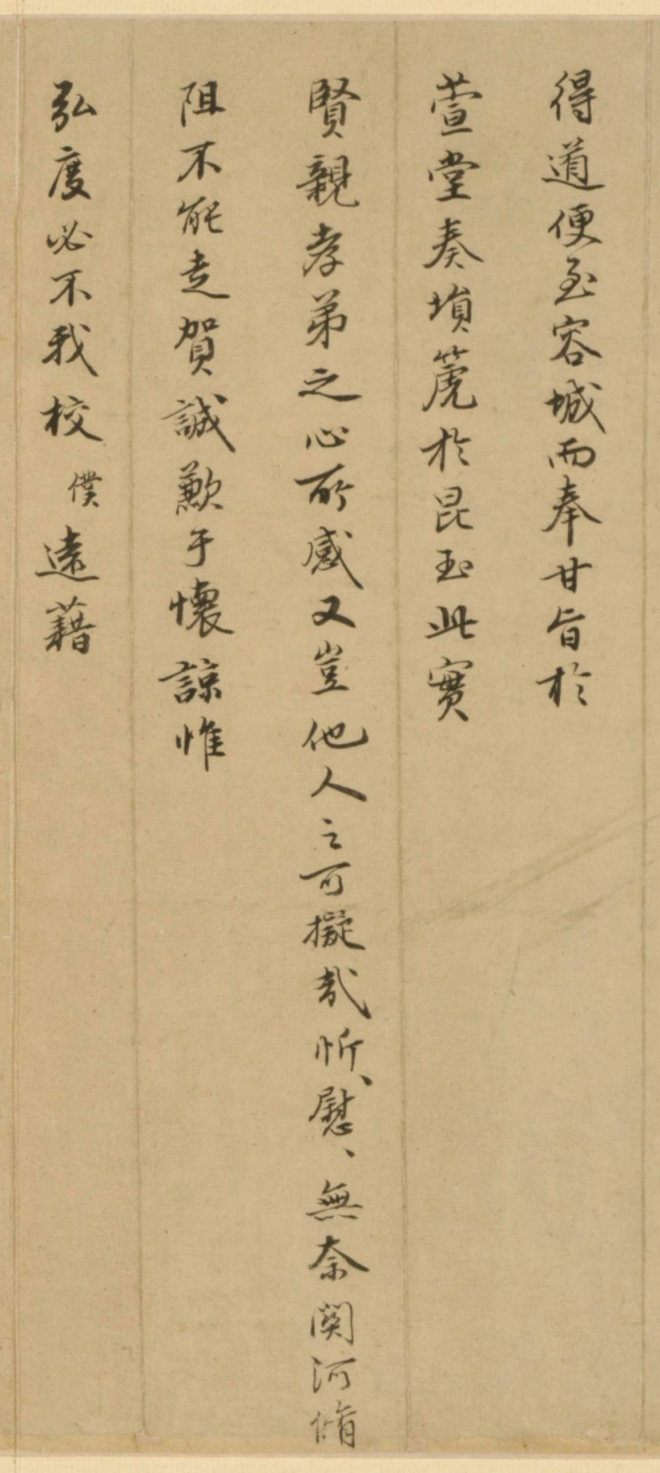 得道便至容城而奉甘旨於
萱堂奏塤篪於昆玉此實
賢親孝弟之心所感又豈他人之可擬哉忻〻慰〻無奈關河脩
阻不能走賀誠歉于懷諒惟
弘度必不我校僕遠藉